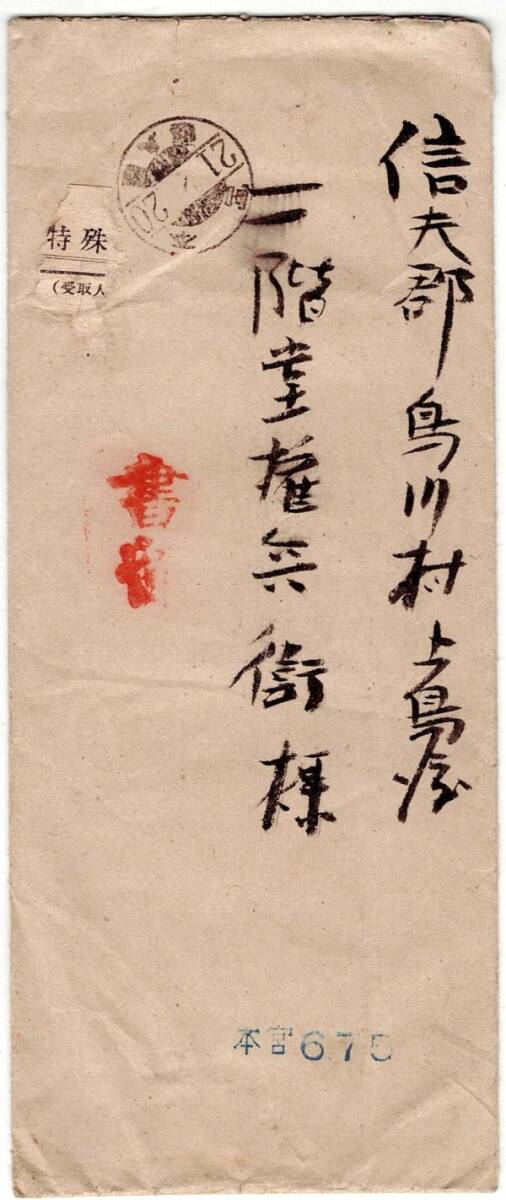 信夫郡鳥川村上鳥渡
二階堂権兵衛様
特殊
(受取人
書留
21
20
本宮675